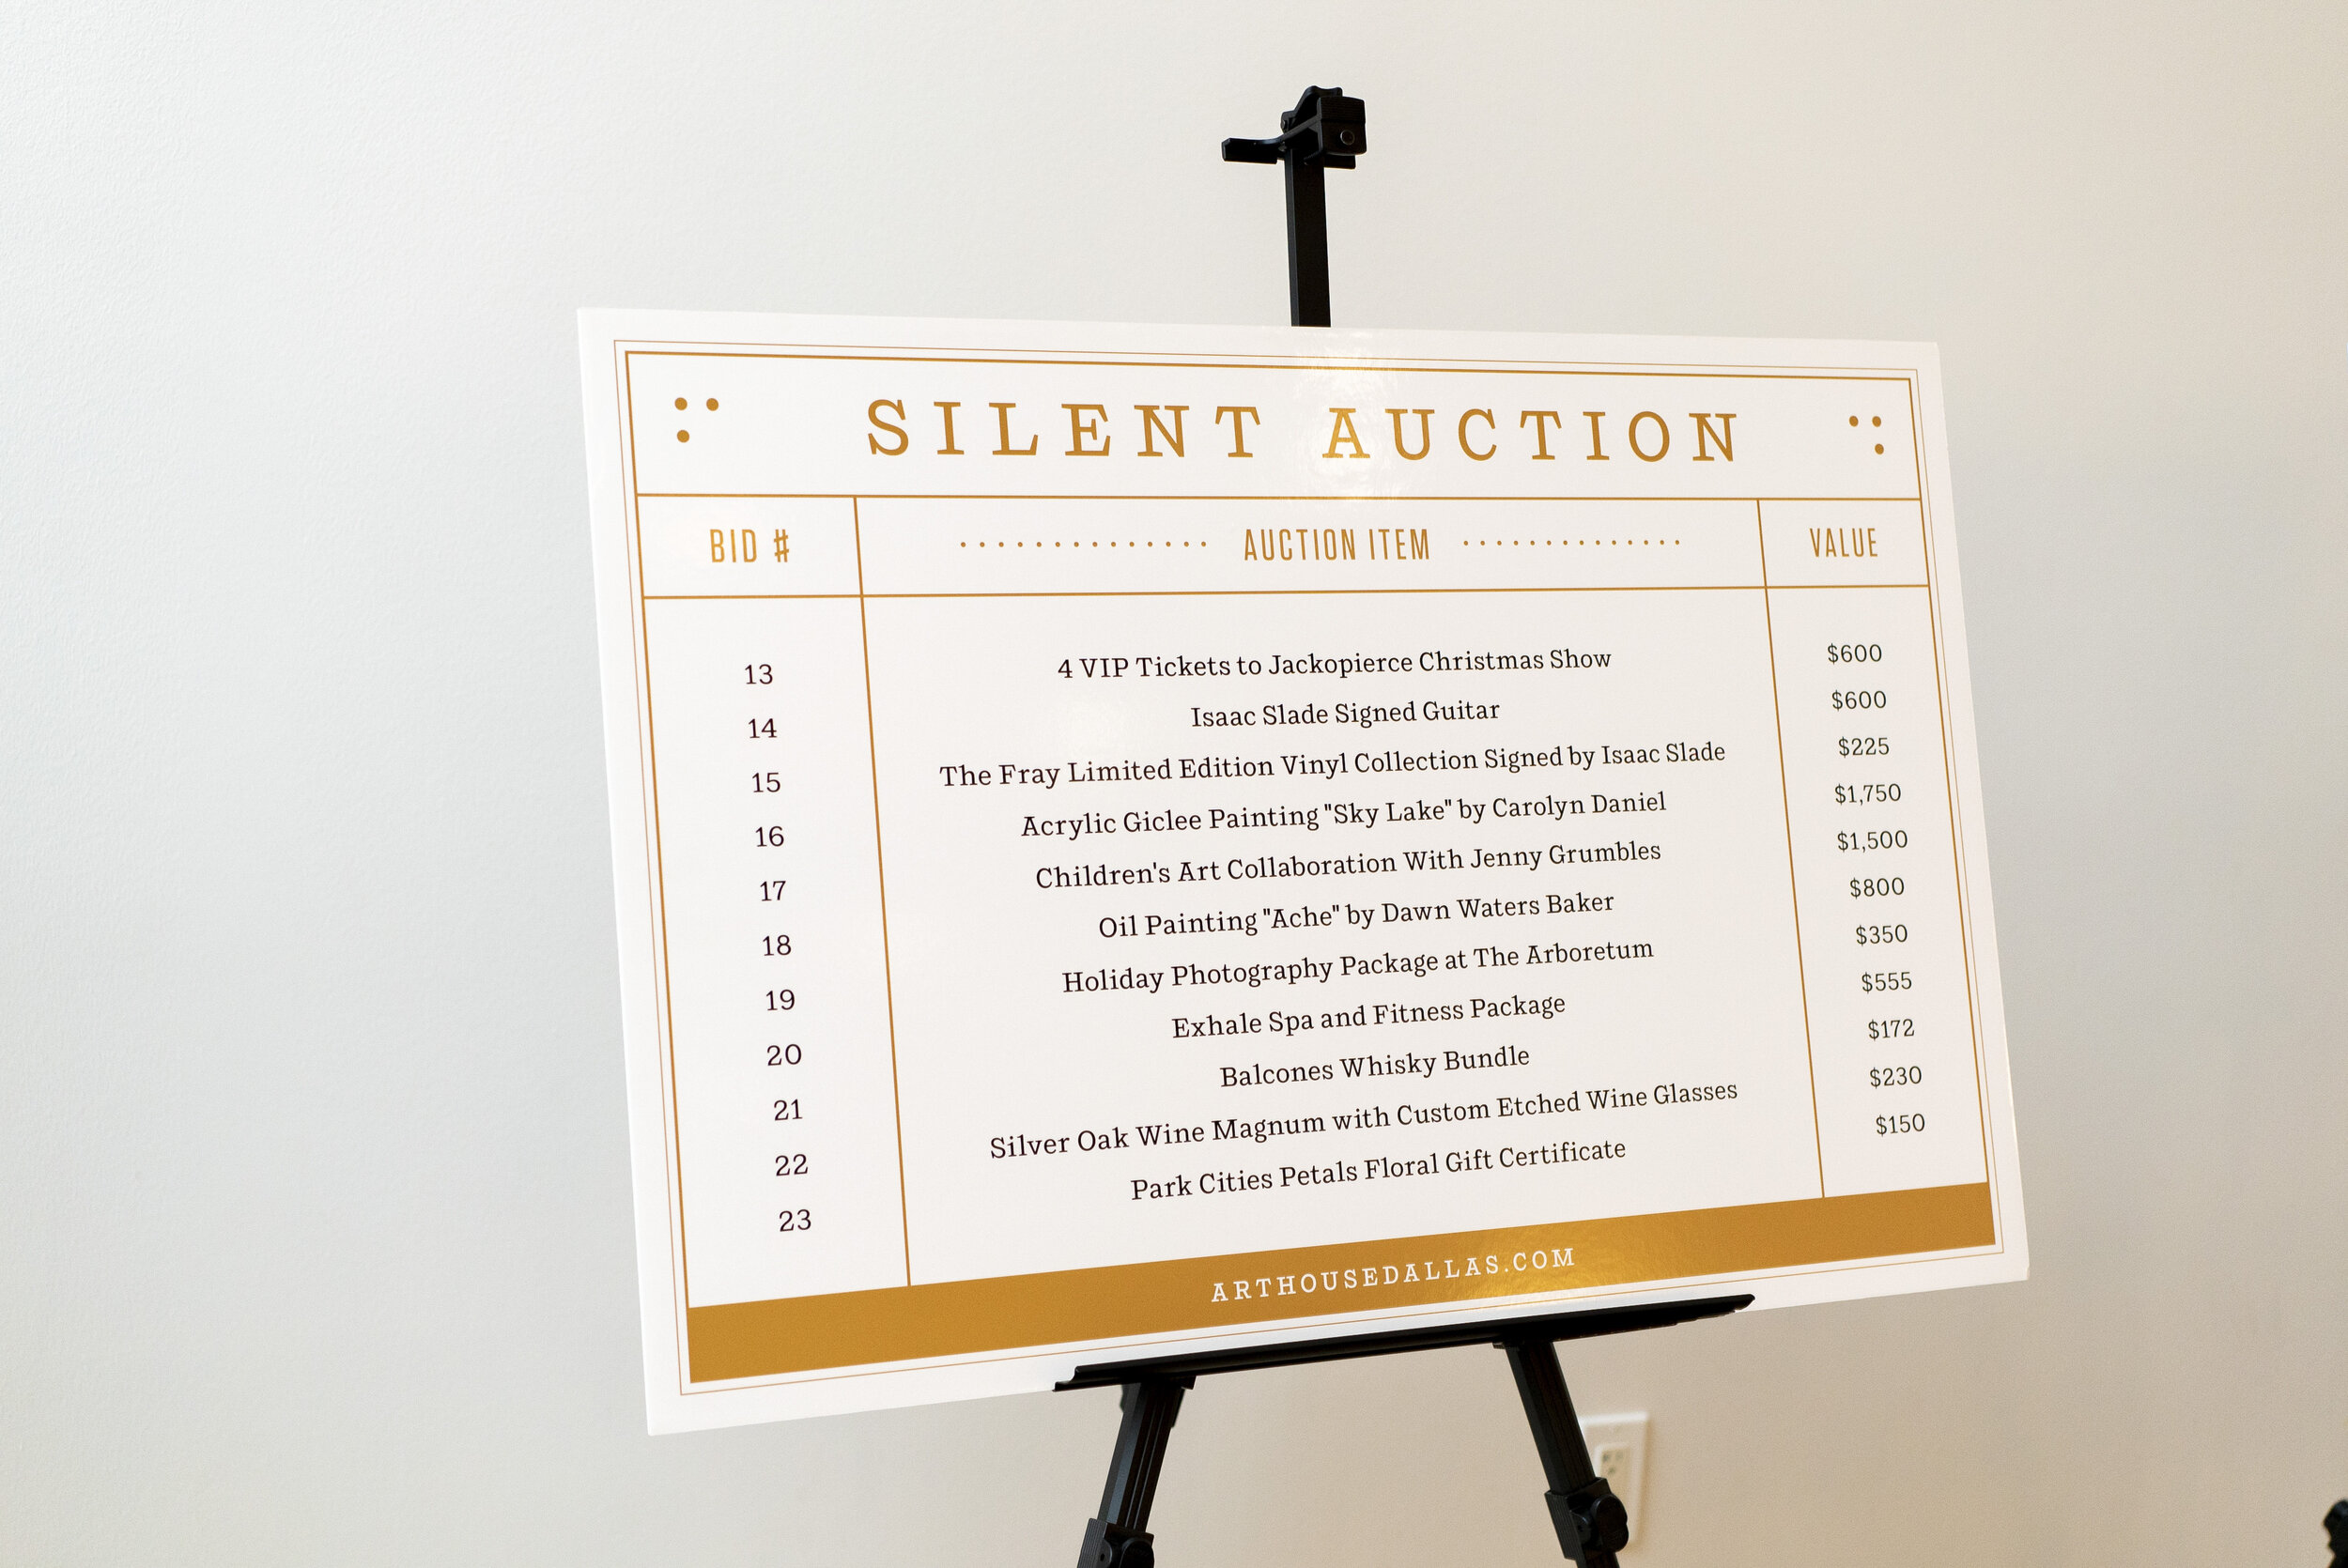 SILENT AUCTION
BID # AUCTION ITEM VALUE
13 4 VIP Tickets to Jackopierce Christmas Show $600
14 Isaac Slade Signed Guitar $600
15 The Fray Limited Edition Vinyl Collection Signed by Isaac Slade $225
16 Acrylic Giclee Painting "Sky Lake" by Carolyn Daniel $1,750
17 Children's Art Collaboration With Jenny Grumbles $1,500
18 Oil Painting "Ache" by Dawn Waters Baker $800
19 Holiday Photography Package at The Arboretum $350
20 Exhale Spa and Fitness Package $555
21 Balcones Whisky Bundle $172
22 Silver Oak Wine Magnum with Custom Etched Wine Glasses $230
23 Park Cities Petals Floral Gift Certificate $150
ARTHOUSEDALLAS.COM